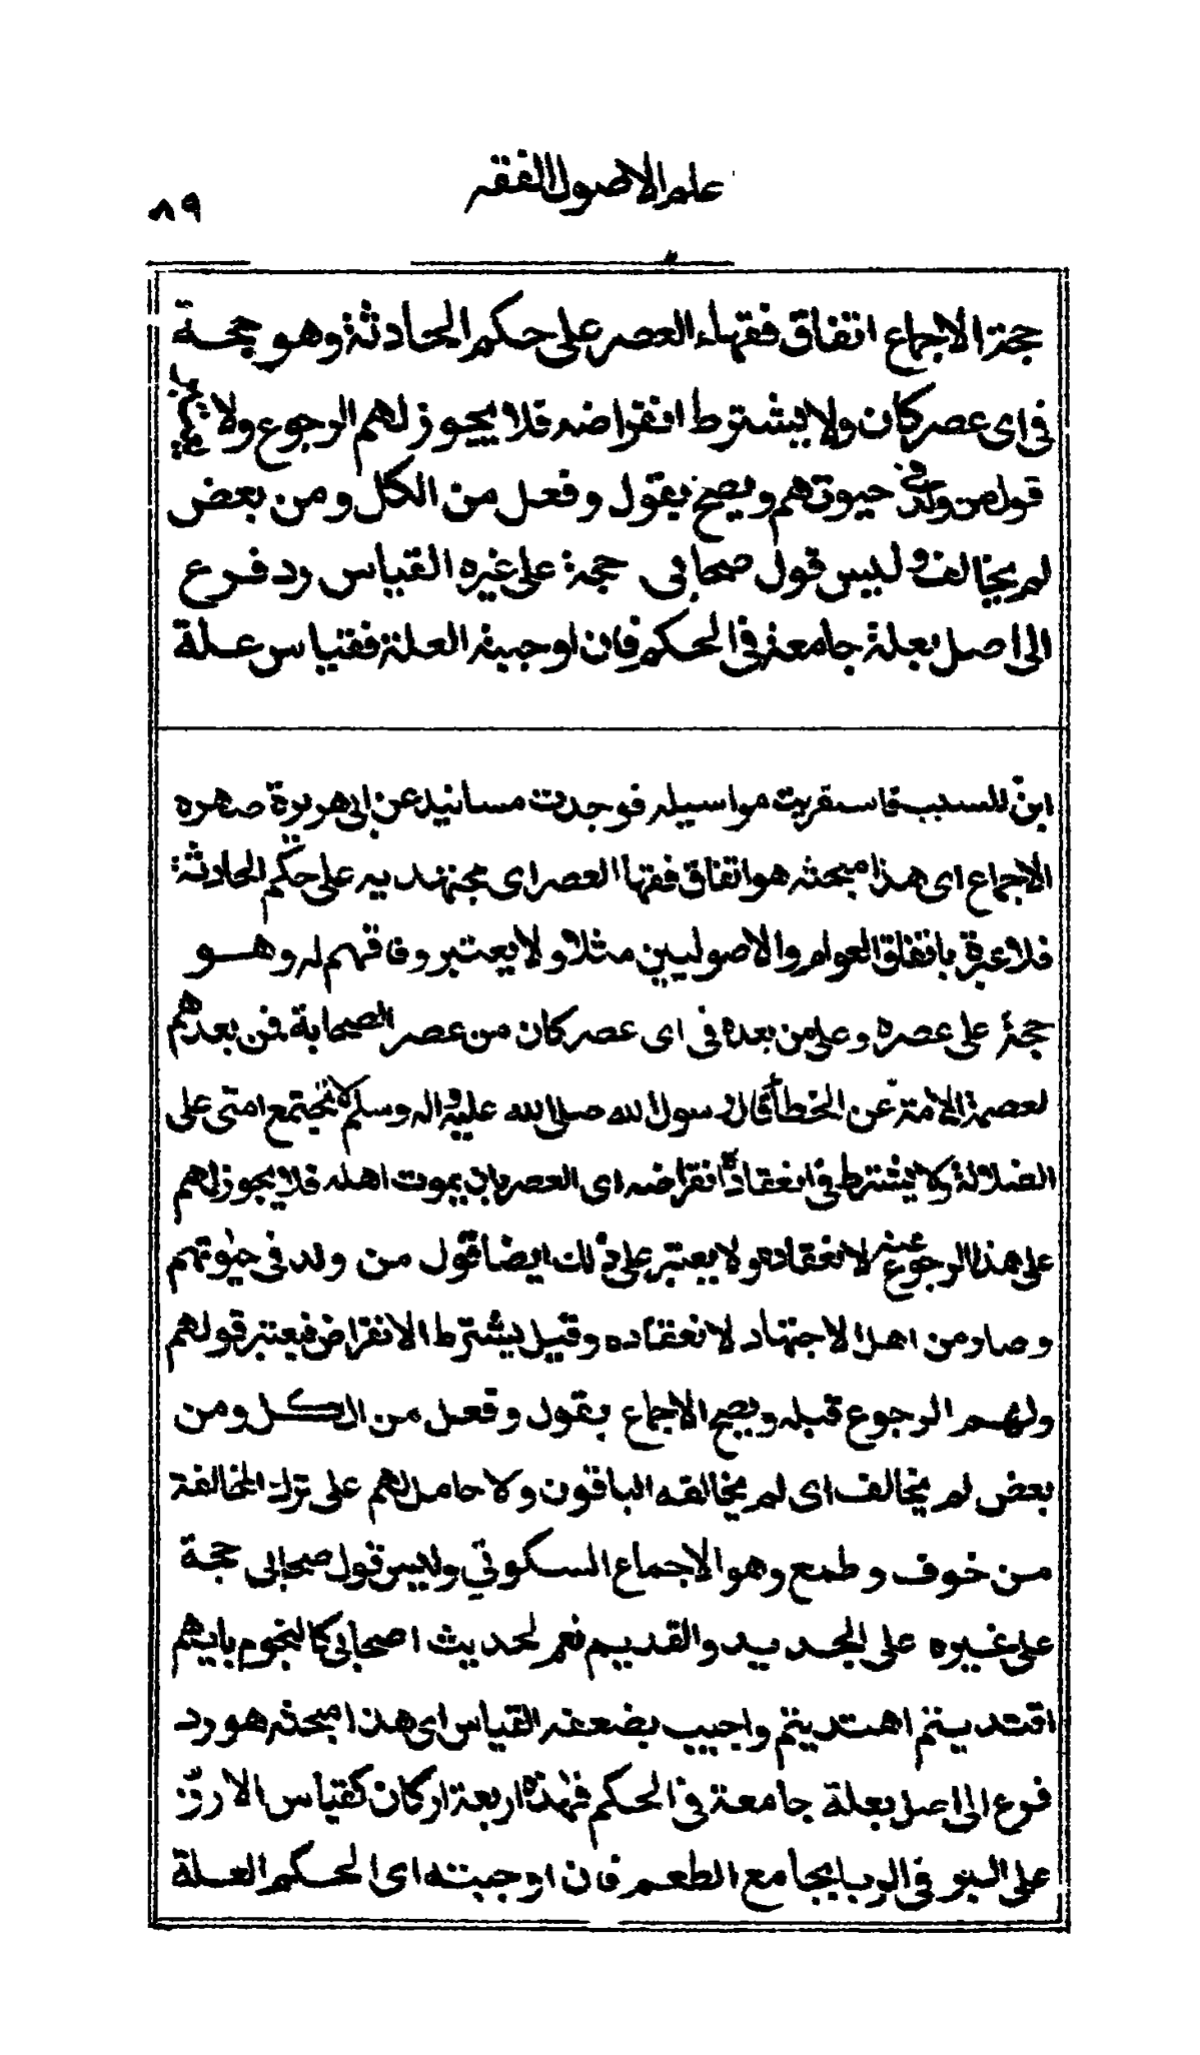 علم الاصول الفقه
٨٩
حجة الاجماع اتفاق فقهاء العصر على حكم الحادثة وهو حجة
فى اى عصر كان ولا يشترط انقراضه فلا يجوز لهم الرجوع ولا يعتبر
قول من ولد فى حيوتهم ويصح بقول وفعل من الكل ومن بعض
لم يخالف وليس قول صحابى حجة على غيره القياس رد فرع
الى اصل بعلة جامعة فى الحكم فان اوجبته العلة فقياس علة
ابن المسيب فاستقريت مراسيله فوجدت مسانيد عن ابى هريرة صهره
الاجماع اى هذا مبحثه هو اتفاق فقها العصر اى مجتهديه على حكم الحادثة
فلا عبرة باتفاق العوام والاصوليين مثلا ولا يعتبر وفاقهم له وهو
حجة على عصره وعلى من بعده فى اى عصر كان من عصر الصحابة فمن بعدهم
لعصمة الامة عن الخطأ قال رسول الله صلى الله عليه واله وسلم لا تجتمع امتى على
الضلالة ولا يشترط فى انعقاده انقراضه اى العصر بان يموت اهله فلا يجوز لهم
على هذا الرجوع عنه لانعقاده ولا يعتبر على ذلك ايضا قول من ولد فى حيوتهم
وصار من اهل الاجتهاد لانعقاده وقيل يشترط الانقراض فيعتبر قولهم
ولهم الرجوع قبله ويصح الاجماع بقول وفعل من الكل ومن
بعض لم يخالف اى لم يخالفه الباقون ولا حامل لهم على ترك المخالفة
من خوف وطمع وهو الاجماع السكوتي وليس قول صحابى حجة
على غيره على الجديد والقديم نعم لحديث اصحابى كالنجوم بايهم
اقتديتم اهتديتم واجيب بضعفه القياس اى هذا مبحثه هو رد
فرع الى اصل بعلة جامعة فى الحكم فهذه اربعة اركان كقياس الارز
على البر فى الربا بجامع الطعم فان اوجبته اى الحكم العلة